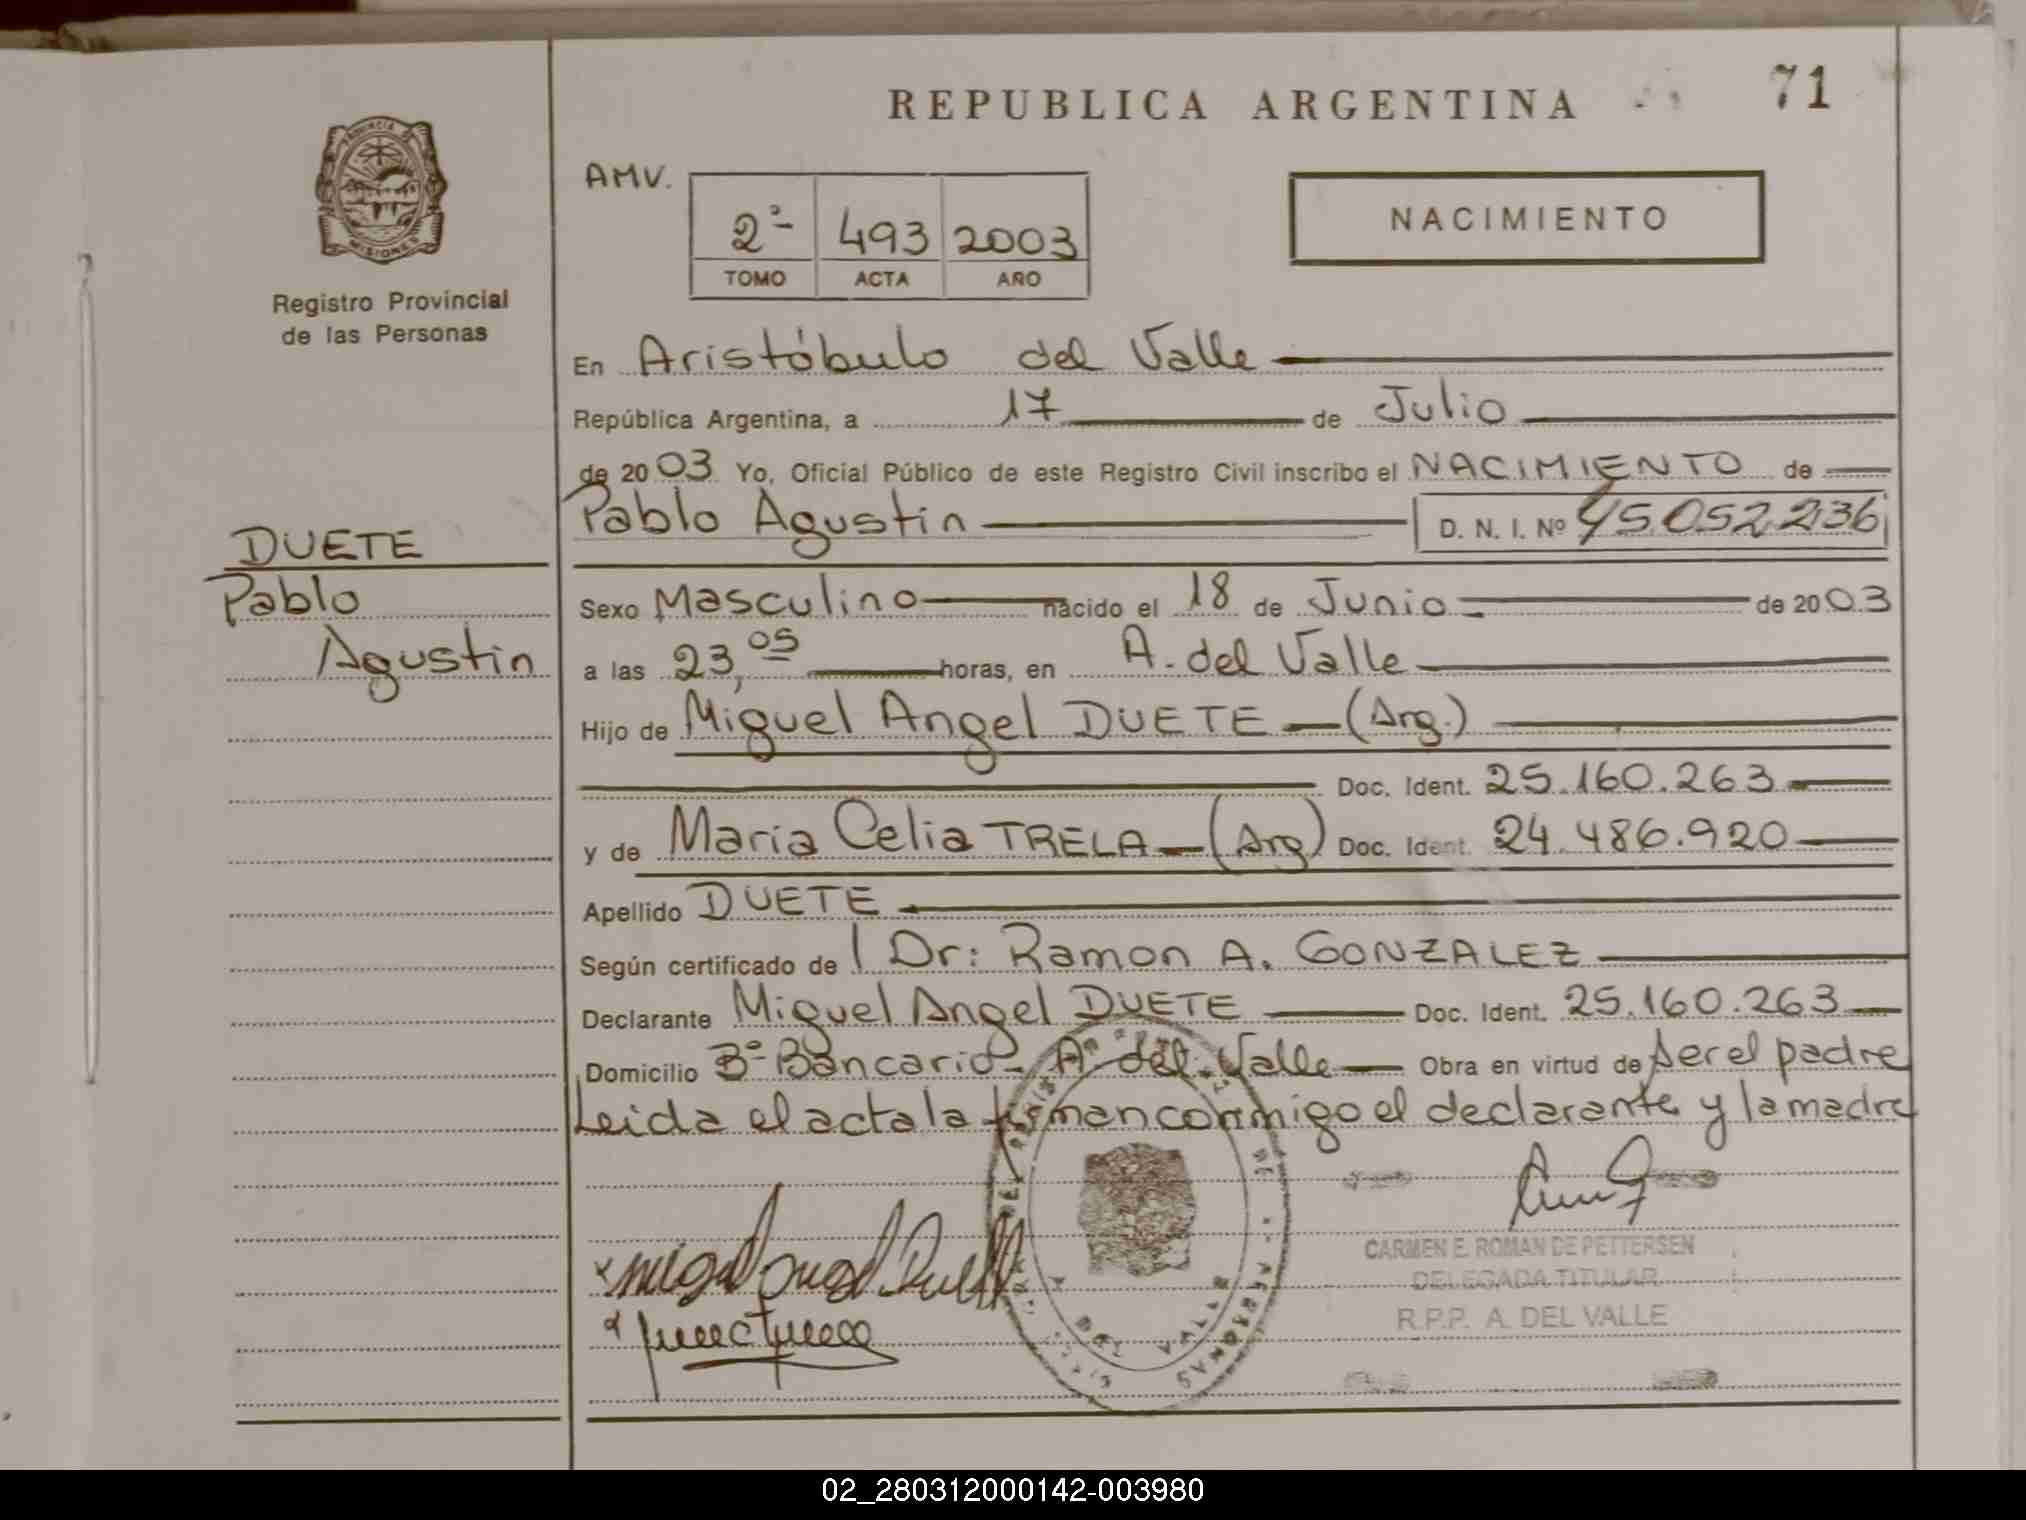 REPUBLICA ARGENTINA
71
PROVINCIA DE
MISIONES
Registro Provincial
de las Personas
AMV.
2º 493 2003
TOMO ACTA AÑO
NACIMIENTO
En Aristóbulo del Valle
República Argentina, a 17 de Julio
de 2003 Yo, Oficial Público de este Registro Civil inscribo el NACIMIENTO de
Pablo Agustin D. N. I. Nº 45.052.236
DUETE
Pablo
Agustin
Sexo Masculino nacido el 18 de Junio de 2003
a las 23,05 horas, en A. del Valle
Hijo de Miguel Angel DUETE (Arg.)
Doc. Ident. 25.160.263
y de Maria Celia TRELA (Arg) Doc. Ident. 24.486.920
Apellido DUETE
Según certificado de Dr: Ramon A. GONZALEZ
Declarante Miguel Angel DUETE Doc. Ident. 25.160.263
Domicilio Bº Bancario - A. del Valle Obra en virtud de ser el padre
Leida el acta la firman conmigo el declarante y la madre
CARMEN E. ROMAN DE PETTERSEN
DELEGADA TITULAR
R.P.P. A. DEL VALLE
02_280312000142-003980